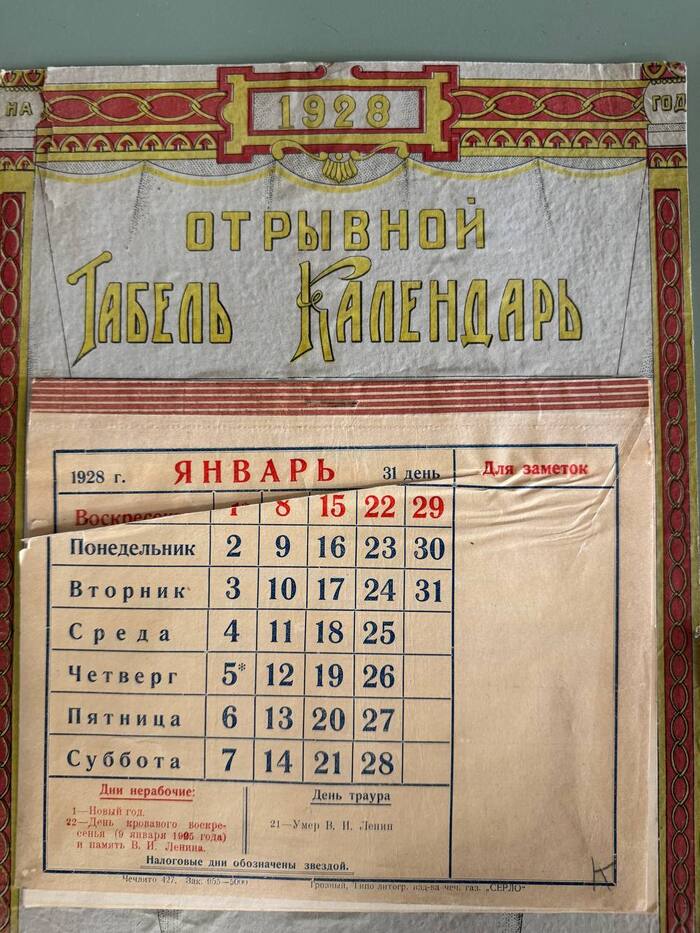 НА 1928 ГОД
ОТРЫВНОЙ
ТАБЕЛЬ КАЛЕНДАРЬ
1928 г. ЯНВАРЬ 31 день Для заметок
8 15 22 29
Понедельник 2 9 16 23 30
Вторник 3 10 17 24 31
Среда 4 11 18 25
Четверг 5* 12 19 26
Пятница 6 13 20 27
Суббота 7 14 21 28
Дни нерабочие:
1—Новый год.
22—День кровавого воскре-
сенья (9 января 1905 года)
и память В. И. Ленина.
День траура
21—Умер В. И. Ленин
Налоговые дни обозначены звездой.
427. Зак. 955—5000 Грозный, Типо литогр. изд-ва чеч. газ. „СЕРЛО"